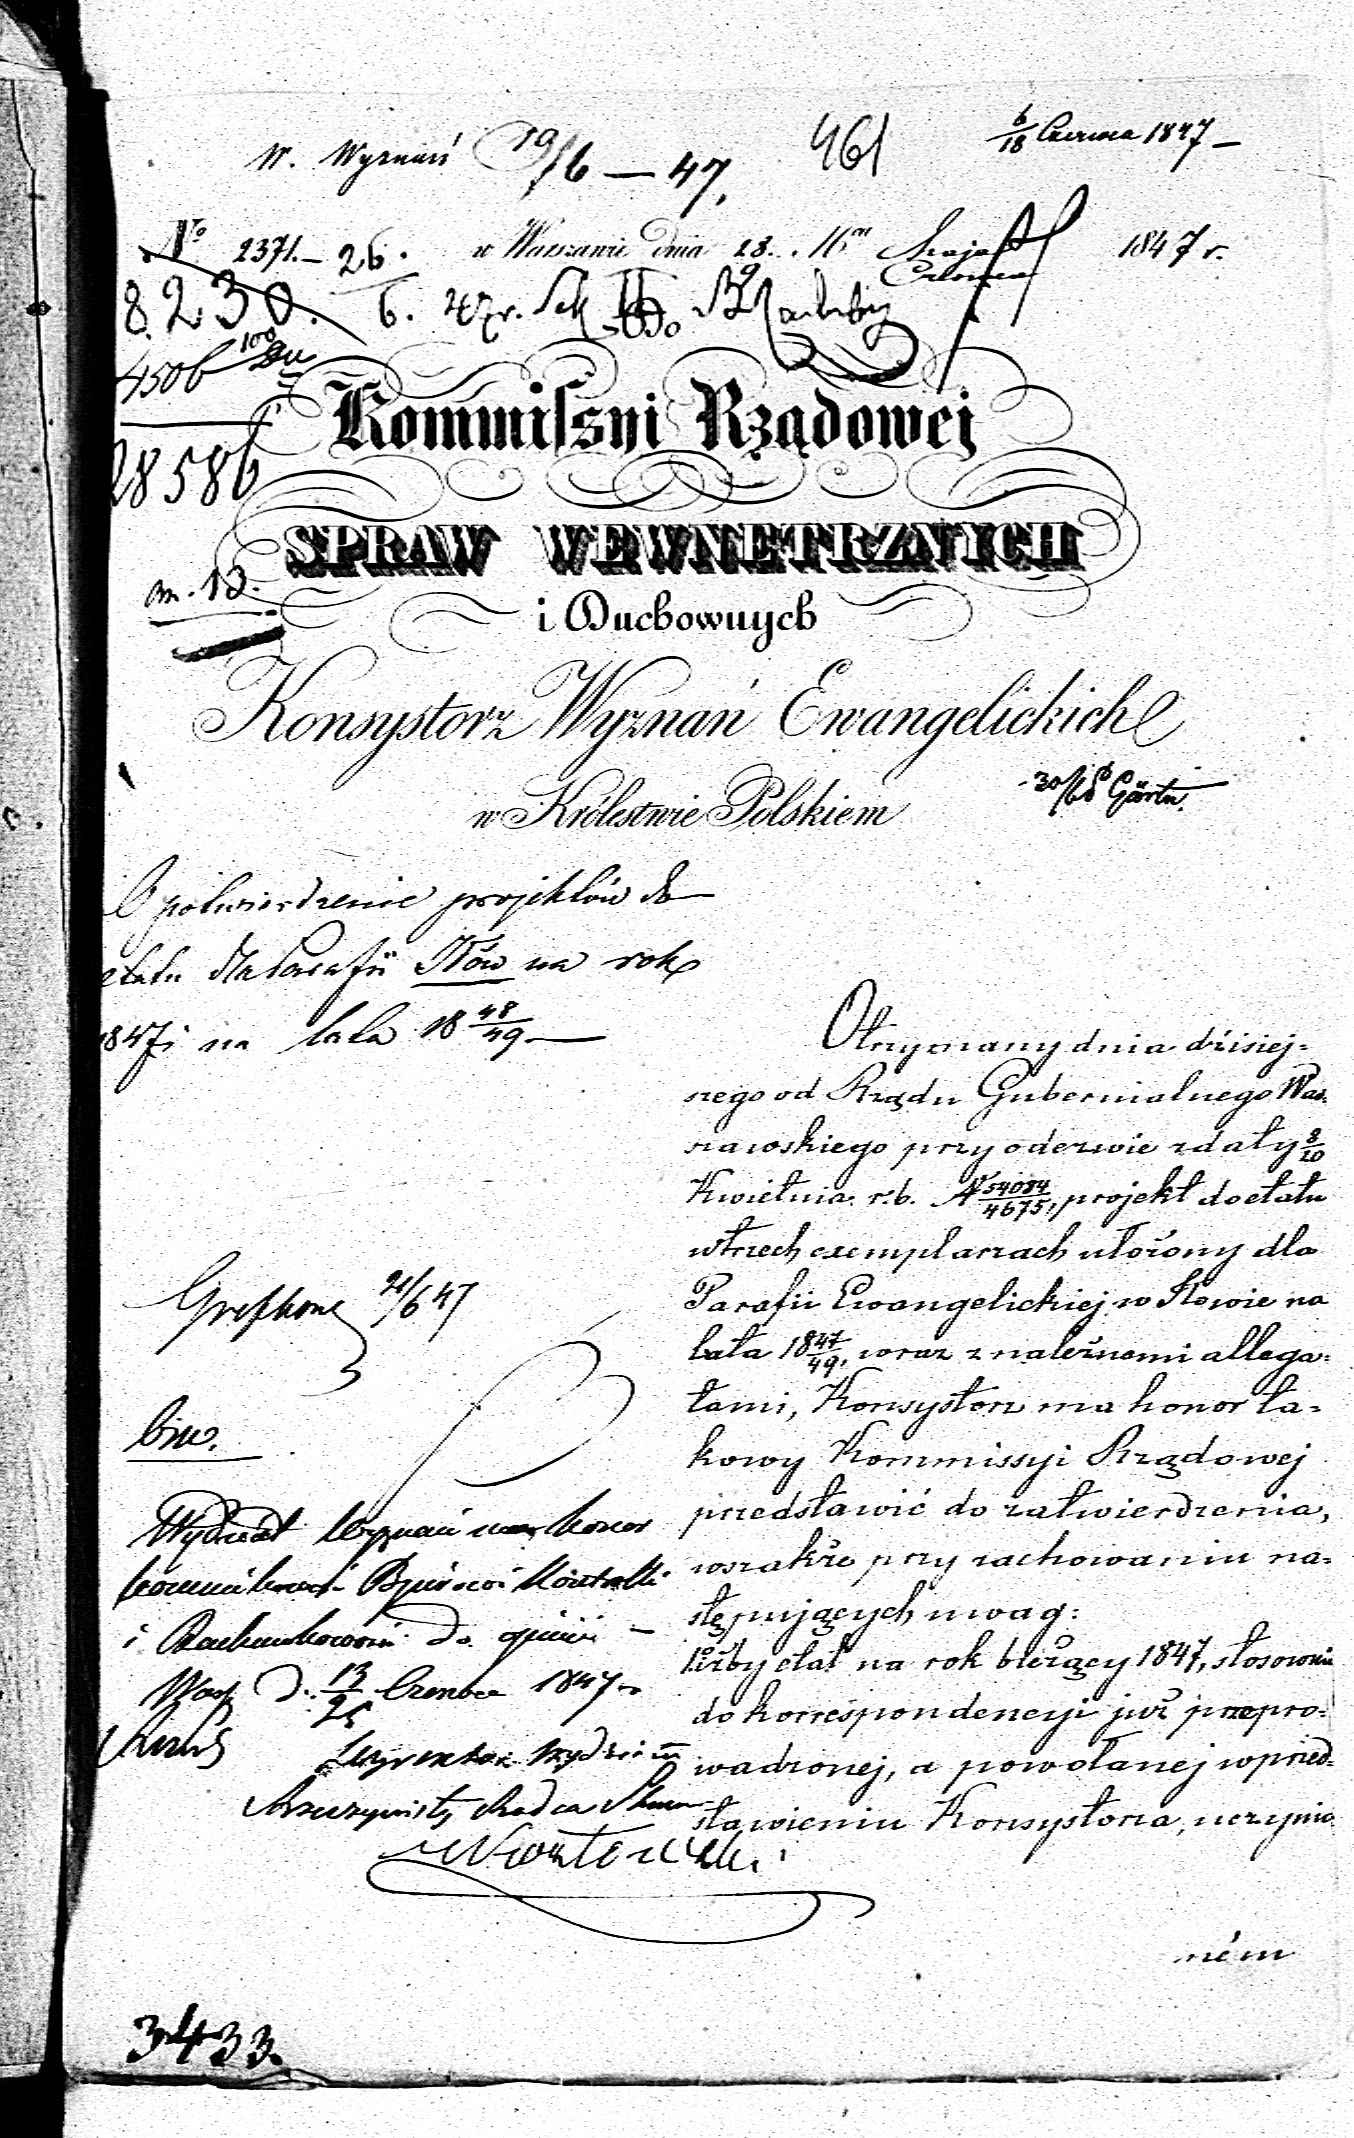 W. Wyznań 19/6 — 47.
461
6/18 Czerwca 1847 —
No 2371. — w Warszawie dnia 1847 r.
26.
6. 47 r.
8.230.
4506
28586
Kommissyi Rządowej
SPRAW WEWNĘTRZNYCH
i Duchownych
Konsystorz Wyznań Ewangelickich
w Królestwie Polskiem
O potwierdzenie projektów do
etatu dla Parafii Iłów na rok
1847 i na lata 18 48/49 —
Otrzymany dnia dzisiej=
szego od Rządu Gubernialnego War=
szawskiego przy odezwie z daty 8/20
Kwietnia r. b. No 54084/4675, projekt do etatu
w trzech exemplarzach ułożony dla
Parafii Ewangelickiej w Iłowie na
lata 18 47/49, wraz z należnemi allega=
tami, Konsystorz ma honor ta=
kowy Kommissyi Rządowej
przedstawić do zatwierdzenia,
wszakże przy zachowaniu na=
stępujących uwag:
1. iżby etat na rok bieżący 1847, stosownie
do korrespondencyi już przepro=
wadzonej, a powołanej w przed=
stawieniu Konsystorza, uczynio
ném
21/6 47
Wydział Wyznań ma honor
i Rachunkowości do opinii —
d. 13/25 Czerwca 1847 r.
Rzeczywisty Radca Stanu
3433.